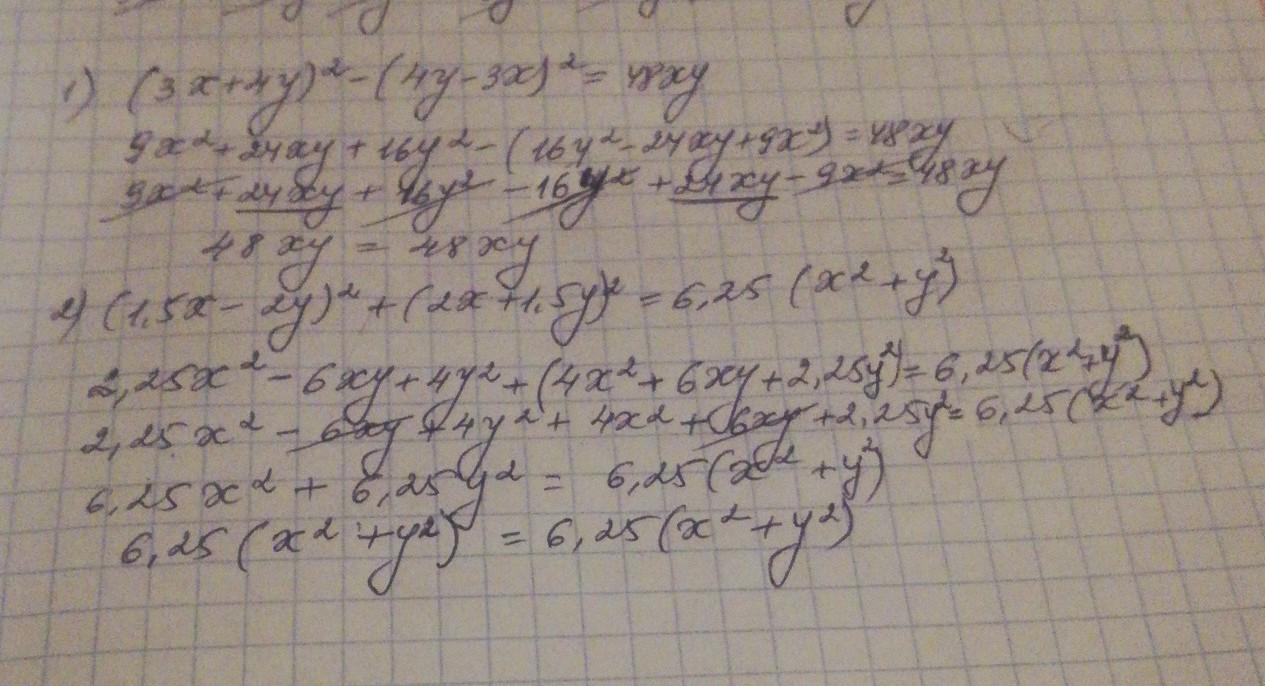 1) (3x+4y)²-(4y-3x)²=48xy
9x²+24xy+16y²-(16y²-24xy+9x²)=48xy
9x²+24xy+16y²-16y²+24xy-9x²=48xy
48xy=48xy
2) (1,5x-2y)²+(2x+1,5y)²=6,25(x²+y²)
2,25x²-6xy+4y²+(4x²+6xy+2,25y²)=6,25(x²+y²)
2,25x²-6xy+4y²+4x²+6xy+2,25y²=6,25(x²+y²)
6,25x²+6,25y²=6,25(x²+y²)
6,25(x²+y²)=6,25(x²+y²)